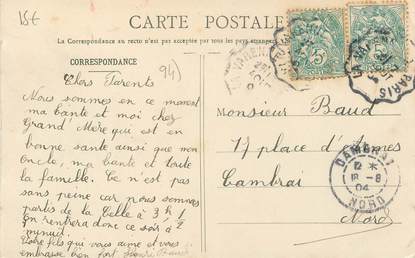 15€
CARTE POSTALE
La Correspondance au recto n'est pas acceptée par tous les pays étrangers
CORRESPONDANCE
94)
Chers Parents
Nous sommes en ce moment
ma tante et moi chez
Grand Mère qui est en
bonne santé ainsi que mon
oncle, ma tante et toute
la famille. Ce n'est pas
sans peine car nous sommes
partis de la Celle à 3 h 1/
en rentrera donc ce soir à
minuit.
Votre fils qui vous aime et vous
embrasse bien fort Henri Baud
Monsieur Baud
17 place d'Armes
Cambrai
Nord
CAMBRAI
12 *
18 - 8
04
NORD
PARIS